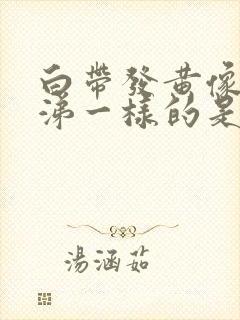 白帶發黃像
涕一樣的是
湯涵茹